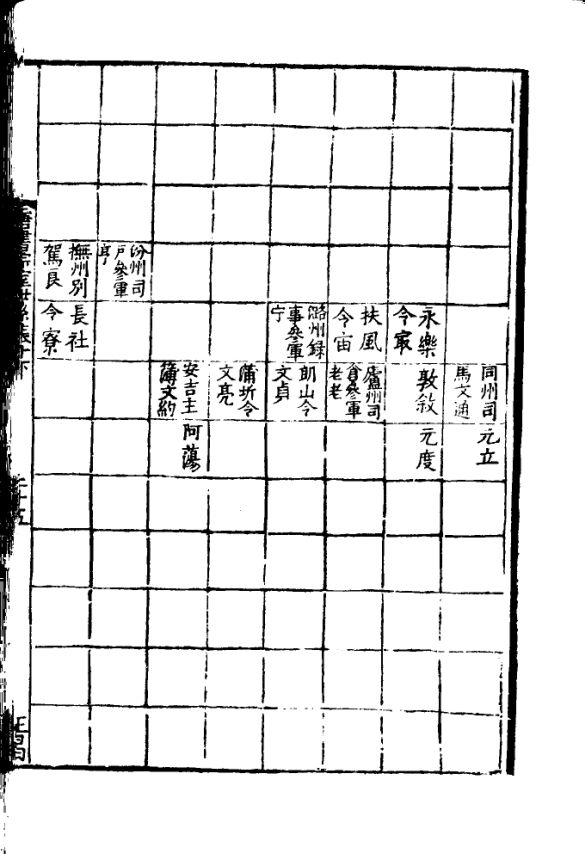 同州司
馬文通
元立
永樂
令㝡
敦敘
元度
扶風
令宙
廬州司
倉參軍
老老
潞州録
事參軍
宁
朗山令
文貞
蒲圻令
文亮
安吉主
簿文約
阿蕩
汾州司
戶參軍
亨
撫州別
駕良
長社
令寮